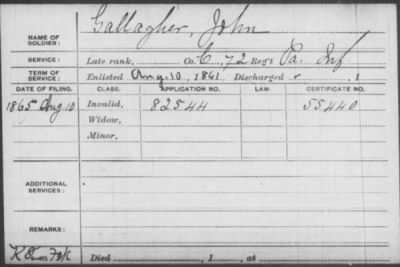 Gallagher, John
NAME OF SOLDIER:
SERVICE: Late rank, Co. C, 72 Reg't Pa. Inf
TERM OF SERVICE: Enlisted Aug. 10, 1861. Discharged , 1
DATE OF FILING. CLASS. APPLICATION NO. LAW. CERTIFICATE NO.
1865 Aug 10 Invalid, 82544 55440
Widow,
Minor,
ADDITIONAL SERVICES:
REMARKS:
Died , 1 , at